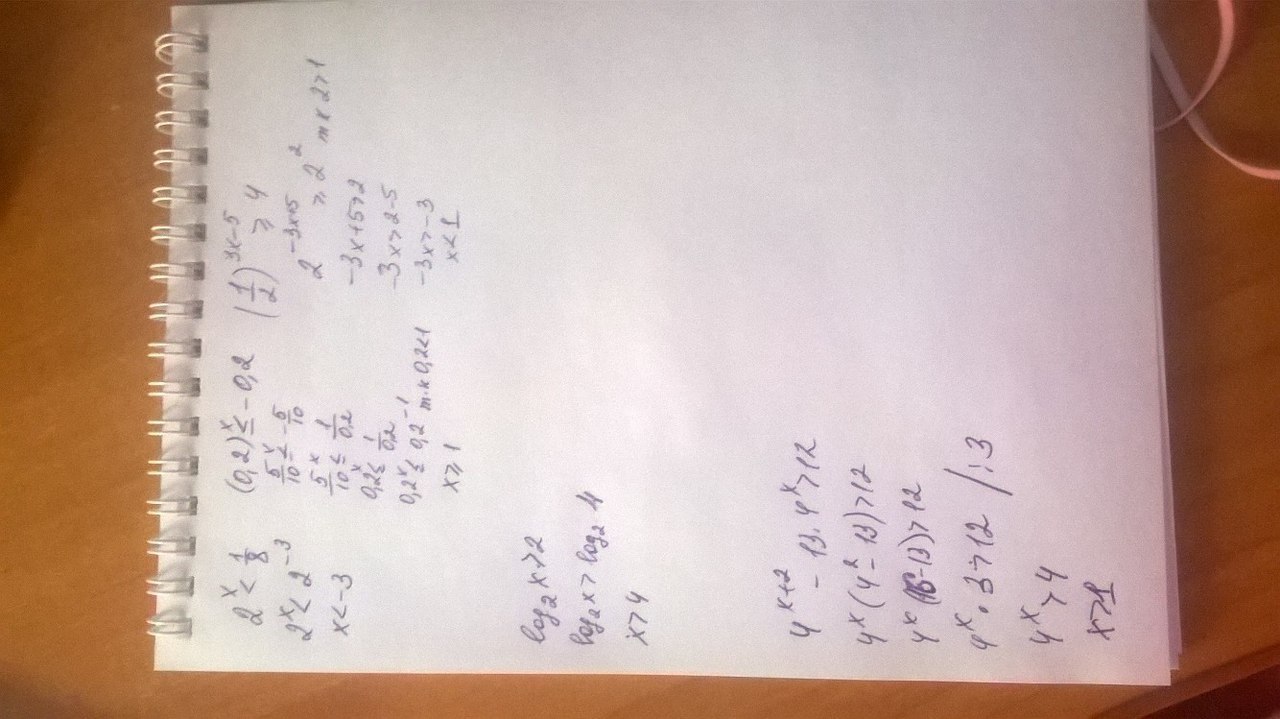 2^x < 1/8
2^x < 2^-3
x<-3
(0,2)^x ≤ -0,2
5/10^x ≤ -5/10
5/10^x ≤ 1/0,2
0,2^x ≤ 1/0,2
0,2^x ≤ 0,2^-1 т.к 0,2<1
x ⩾ 1
(1/2)^3x-5 ⩾ 4
2^-3x+5 ⩾ 2^2 т к 2>1
-3x+5>2
-3x>2-5
-3x>-3
x<1
log₂x>2
log₂x> log₂ 4
x>4
4^x+2 - 13·4^x>12
4^x(4^2-13)>12
4^x(16-13)>12
4^x·3>12 /:3
4^x>4
x>1